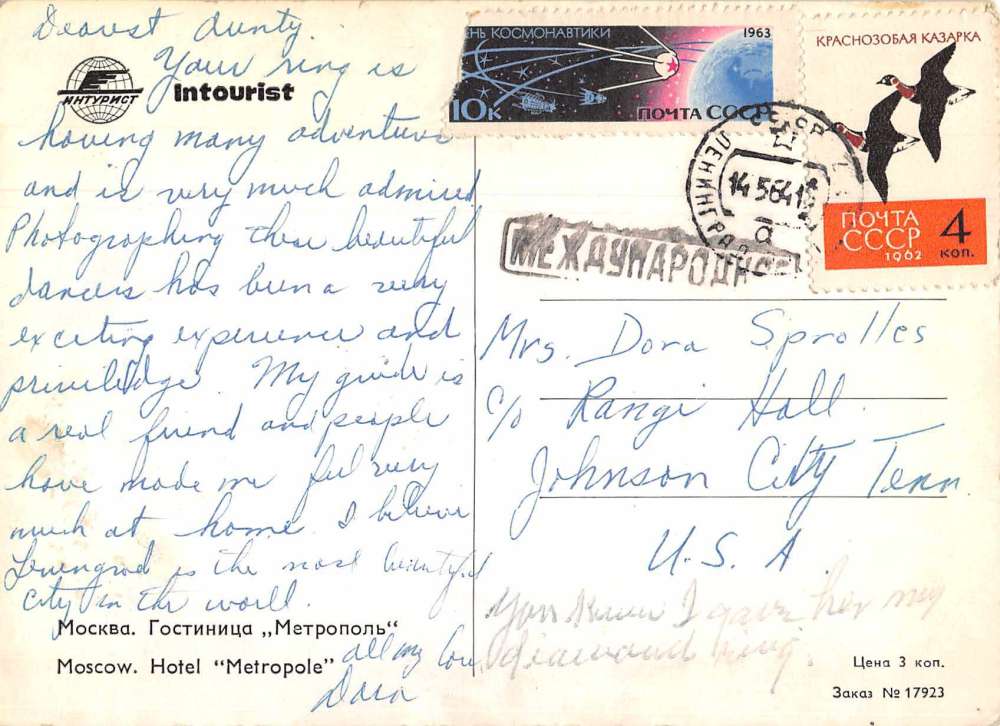 Dearest Aunty.
Your ring is
ИНТУРИСТ
Intourist
having many adventures
and is very much admired
Photographing these beautiful
dancers has been a very
exciting experience and
My guide is
a real friend and people
have made me feel very
much at home. I believe
Leningrad is the most beautiful
city in the world.
Москва. Гостиница „Метрополь“
Moscow. Hotel “Metropole”
all my Love
Dora
ЕНЬ КОСМОНАВТИКИ
1963
10к
ПОЧТА СССР
КРАСНОЗОБАЯ КАЗАРКА
ПОЧТА
СССР
1962
4
коп.
СССР
ЛЕНИНГРАД
14 5 64
а
МЕЖДУНАРОДНОЕ
Mrs. Dora Sprolles
c/o Range Hall.
Johnson City Tenn
U.S.A.
You know I gave her my
diamond ring.
Цена 3 коп.
Заказ № 17923